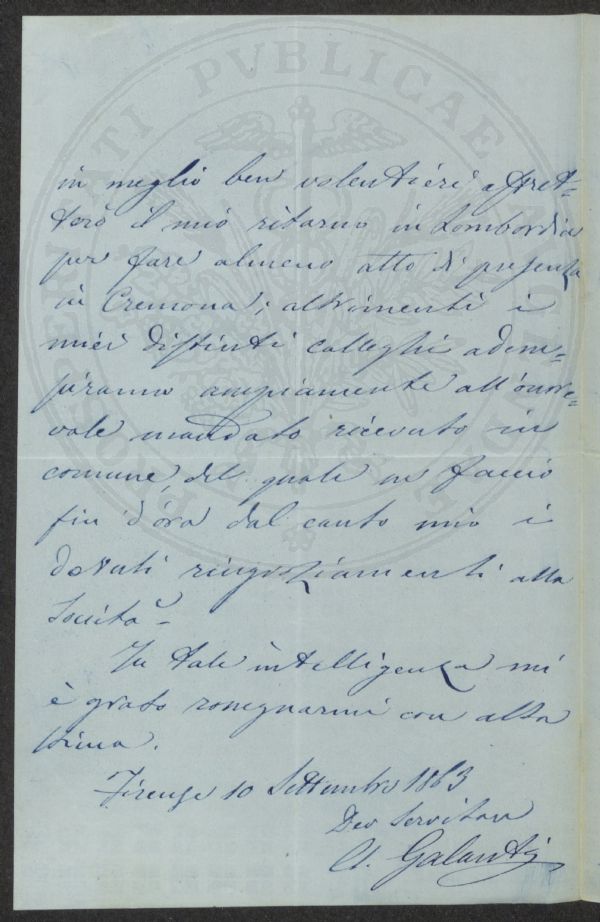 PROSPERITATI PVBLICAE AVGENDAE
in meglio ben volentieri affret-
terò il mio ritorno in Lombardia
per fare almeno atto di presenza
in Cremona; altrimenti i
miei distinti colleghi adem-
piranno ampiamente all'onore-
vole mandato ricevuto in
comune, del quale ne faccio
fin d'ora dal canto mio i
dovuti ringraziamenti alla
Società.
In tale intelligenza mi
è grato rassegnarmi con alta
stima.
Firenze 10 Settembre 1863
Dev Servitore
A. Galanti